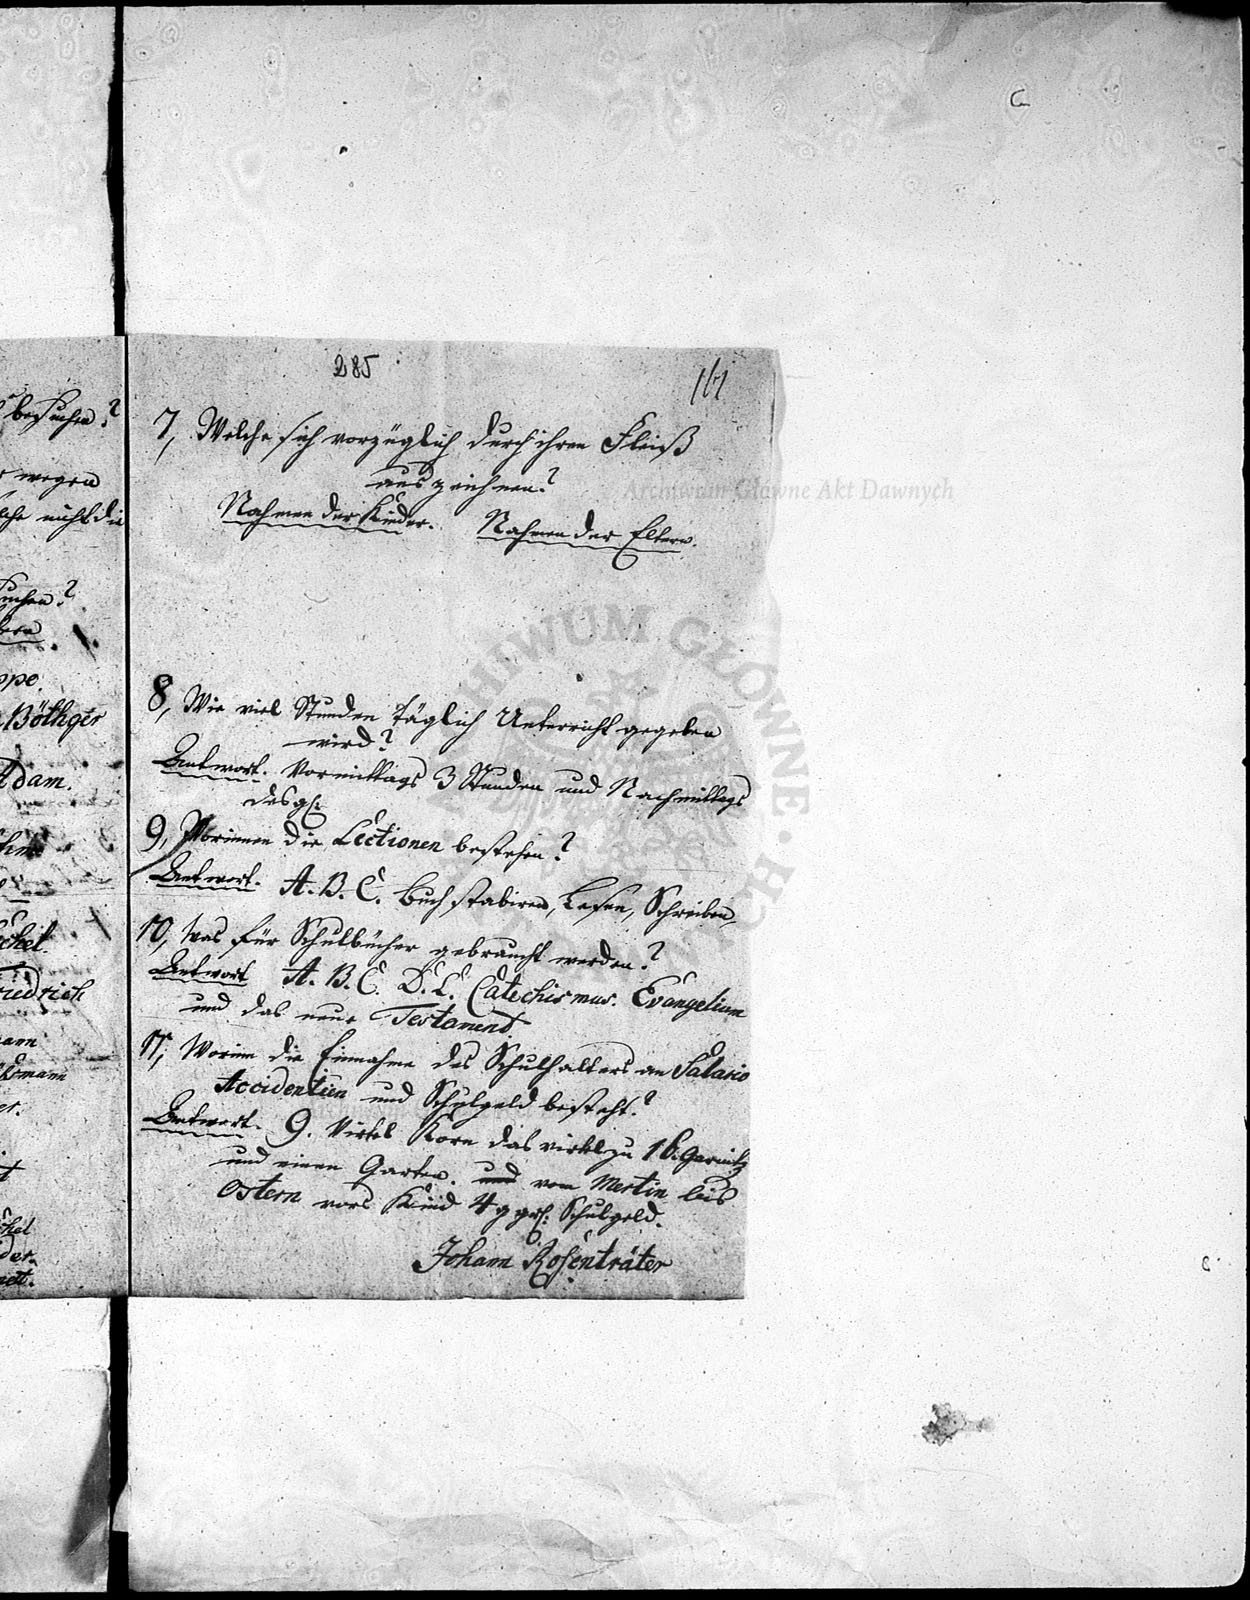 285
161
besuchen?
wegen
nicht die
suchen?
ppe.
Böthger
Adam.
ckel
riedrich
mann
ckel
7, Welche sich vorzüglich durch ihren Fleiß
auszeichnen?
Nahmen der Kinder. Nahmen der Eltern.
8, Wie viel Stunden täglich Unterricht gegeben
wird?
Antwort. Vormittags 3 Stunden und Nachmittags
desgl.
9, Worinnen die Lectionen bestehen?
Antwort. A. B. C. Buchstabiren, Lesen, Schreiben,
10, Was für Schulbücher gebraucht werden?
Antwort A. B. C. D. L. Catechismus. Evangelium
und das neue Testament.
11, Worinn die Einnahme des Schulhalters an Salario
Accidentien und Schulgeld besteht?
Antwort. 9. Virtel Korn das virtel zu 16. Garnitz
und einen Garten. und von Mertin bis
Ostern vors Kind 4 ggr. Schulgeld.
Johann Rosenträter
Archiwum Główne Akt Dawnych
ARCHIWUM GŁÓWNE